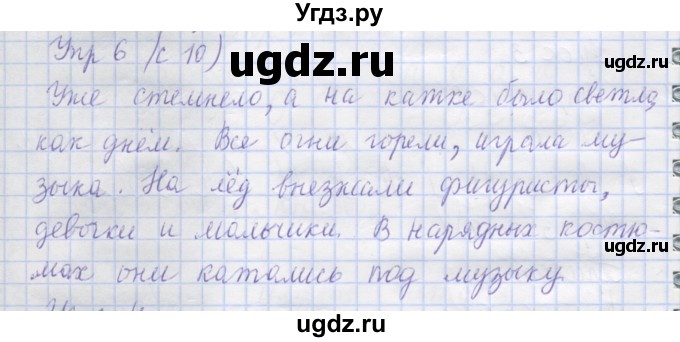 Угдз.ру
Упр 6 (с 10)
ugdz.ru
Уже стемнело, а на катке было светло,
как днём. Все огни горели, играла му-
ugdz.ru
зыка. На лёд внезжали фигуристы,
девочки и мальчики. В нарядных костю-
ugdz.ru
мах они катались под музыку
ugdz.ru